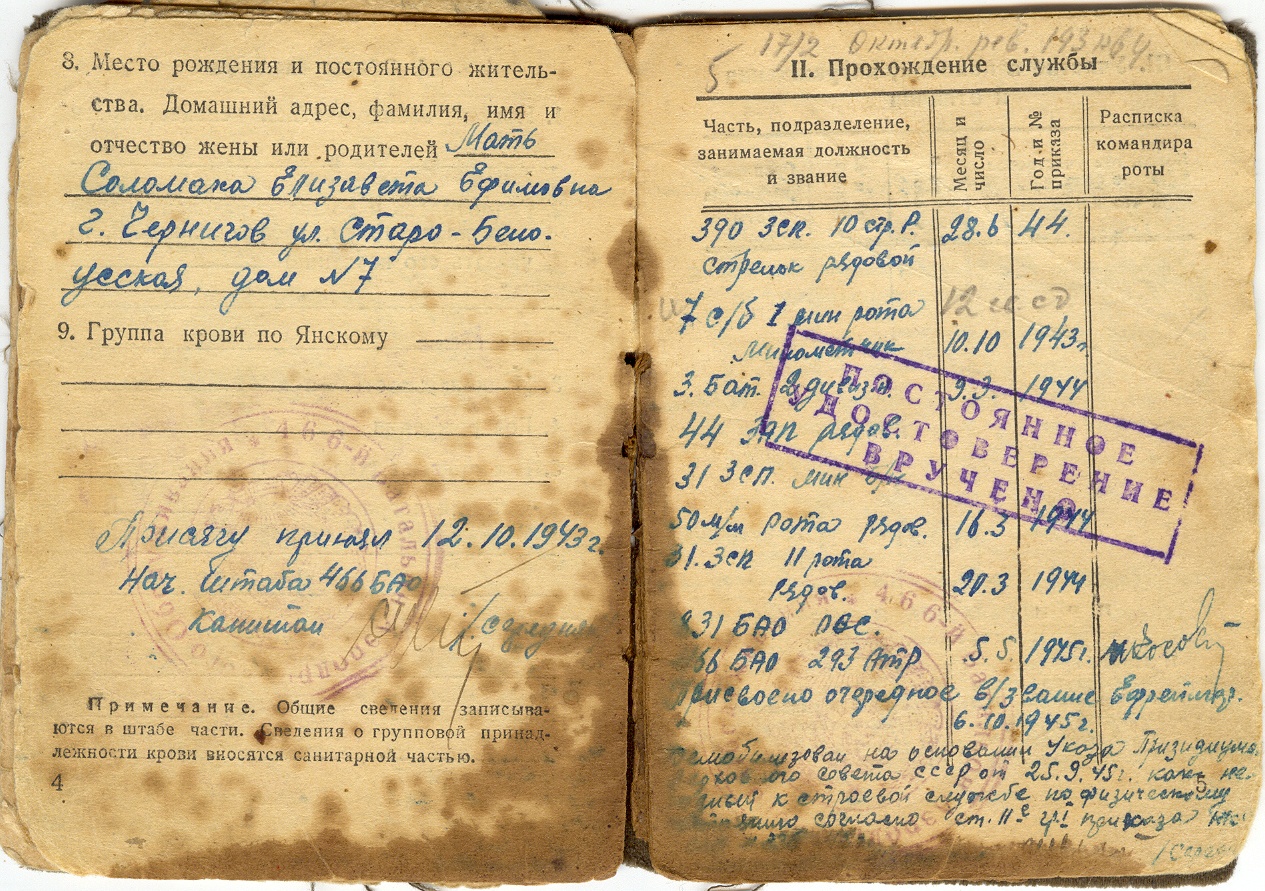 8. Место рождения и постоянного житель-
ства. Домашний адрес, фамилия, имя и
отчество жены или родителей Мать
Соломаха Елизавета Ефимовна
г. Чернигов ул. Старо-Бело-
усская, дом N7
9. Группа крови по Янскому
466-й
Присягу принял 12.10.1943г.
Нач. Штаба 466 БАО
Капитан
Примечание. Общие сведения записыва-
ются в штабе части. Сведения о групповой принад-
лежности крови вносятся санитарной частью.
4
17/2 Октябр. рев.
5
II. Прохождение службы
Часть, подразделение,
занимаемая должность
и звание
Месяц и
число
Год и №
приказа
Расписка
командира
роты
390 ЗСП. 10 стр. Р. 28.6 44.
стрелок рядовой
7 с/б 1 мин рота
Минометчик 10.10 1943г
3. Бат. 2 дивизи. 9.3. 1944
44 рядов.
31 ЗСП. мин
ПОСТОЯННОЕ
УДОСТОВЕРЕНИЕ
ВРУЧЕНО
50 м/м Рота рядов. 16.3 1944
31. ЗСП 11 рота
рядов. 20.3 1944
466-й
831 БАО
466 БАО 293 5.5. 1945г.
Присвоено очередное в/звание Ефрейтор.
6.10.1945г.
Демобилизован на основании Указа Призидиума
Верховного совета СССР от 25.9.45г. как не
годный к строевой службе по физическому
согласно ст. 11 приказа
5